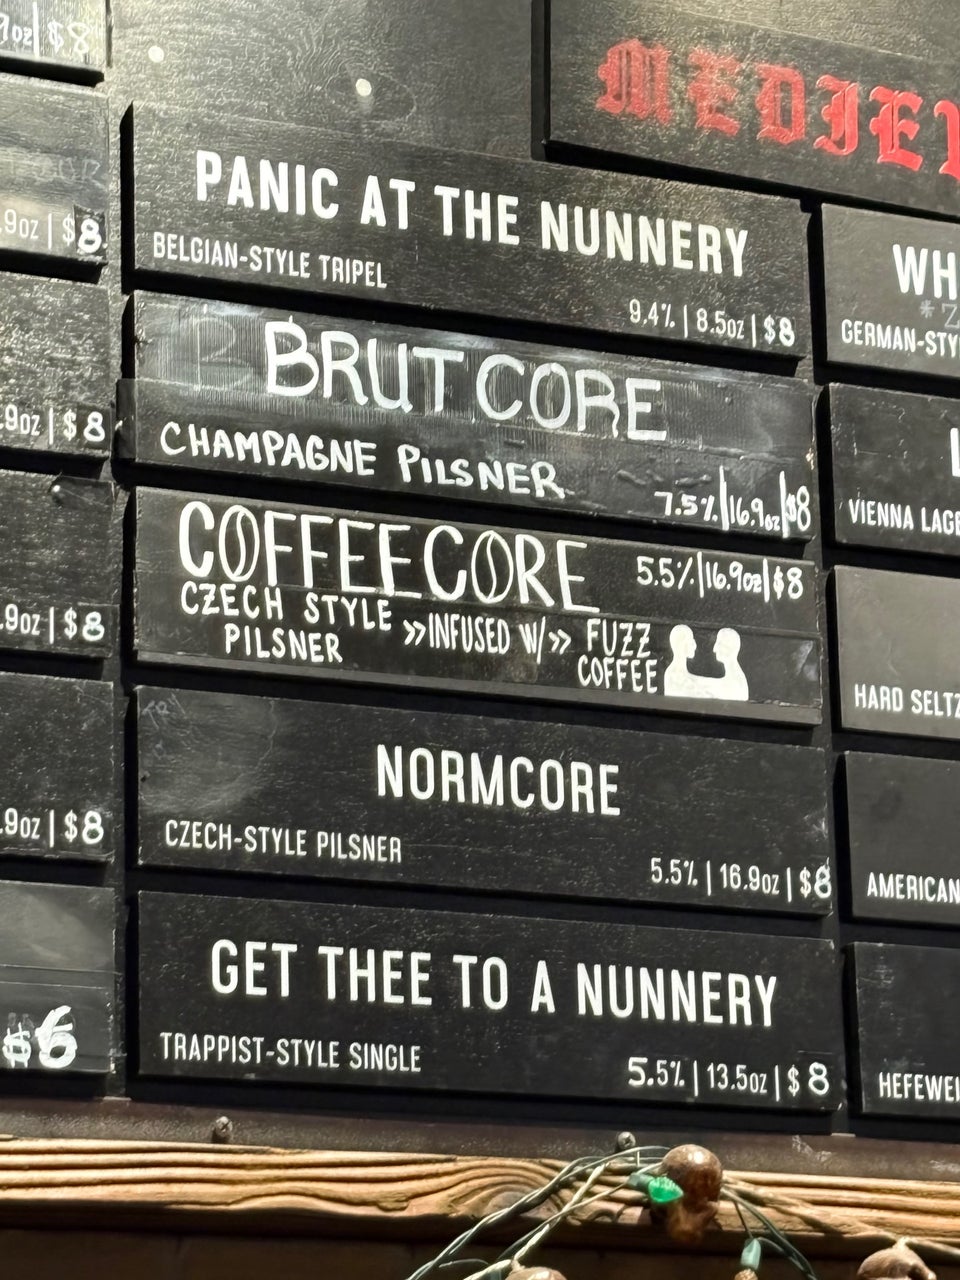 9oz | $8
MEDIEV
.9oz | $8
PANIC AT THE NUNNERY
BELGIAN-STYLE TRIPEL
9.4% | 8.5oz | $8
WH
GERMAN-STY
.9oz | $8
BRUT CORE
CHAMPAGNE PILSNER
7.5% | 16.9oz | $8
L
VIENNA LAGE
.9oz | $8
COFFEECORE
5.5% | 16.9oz | $8
CZECH STYLE
PILSNER
»INFUSED W/»
FUZZ
COFFEE
HARD SELTZ
.9oz | $8
TRY
NORMCORE
CZECH-STYLE PILSNER
5.5% | 16.9oz | $8
AMERICAN
$6
GET THEE TO A NUNNERY
TRAPPIST-STYLE SINGLE
5.5% | 13.5oz | $8
HEFEWEI